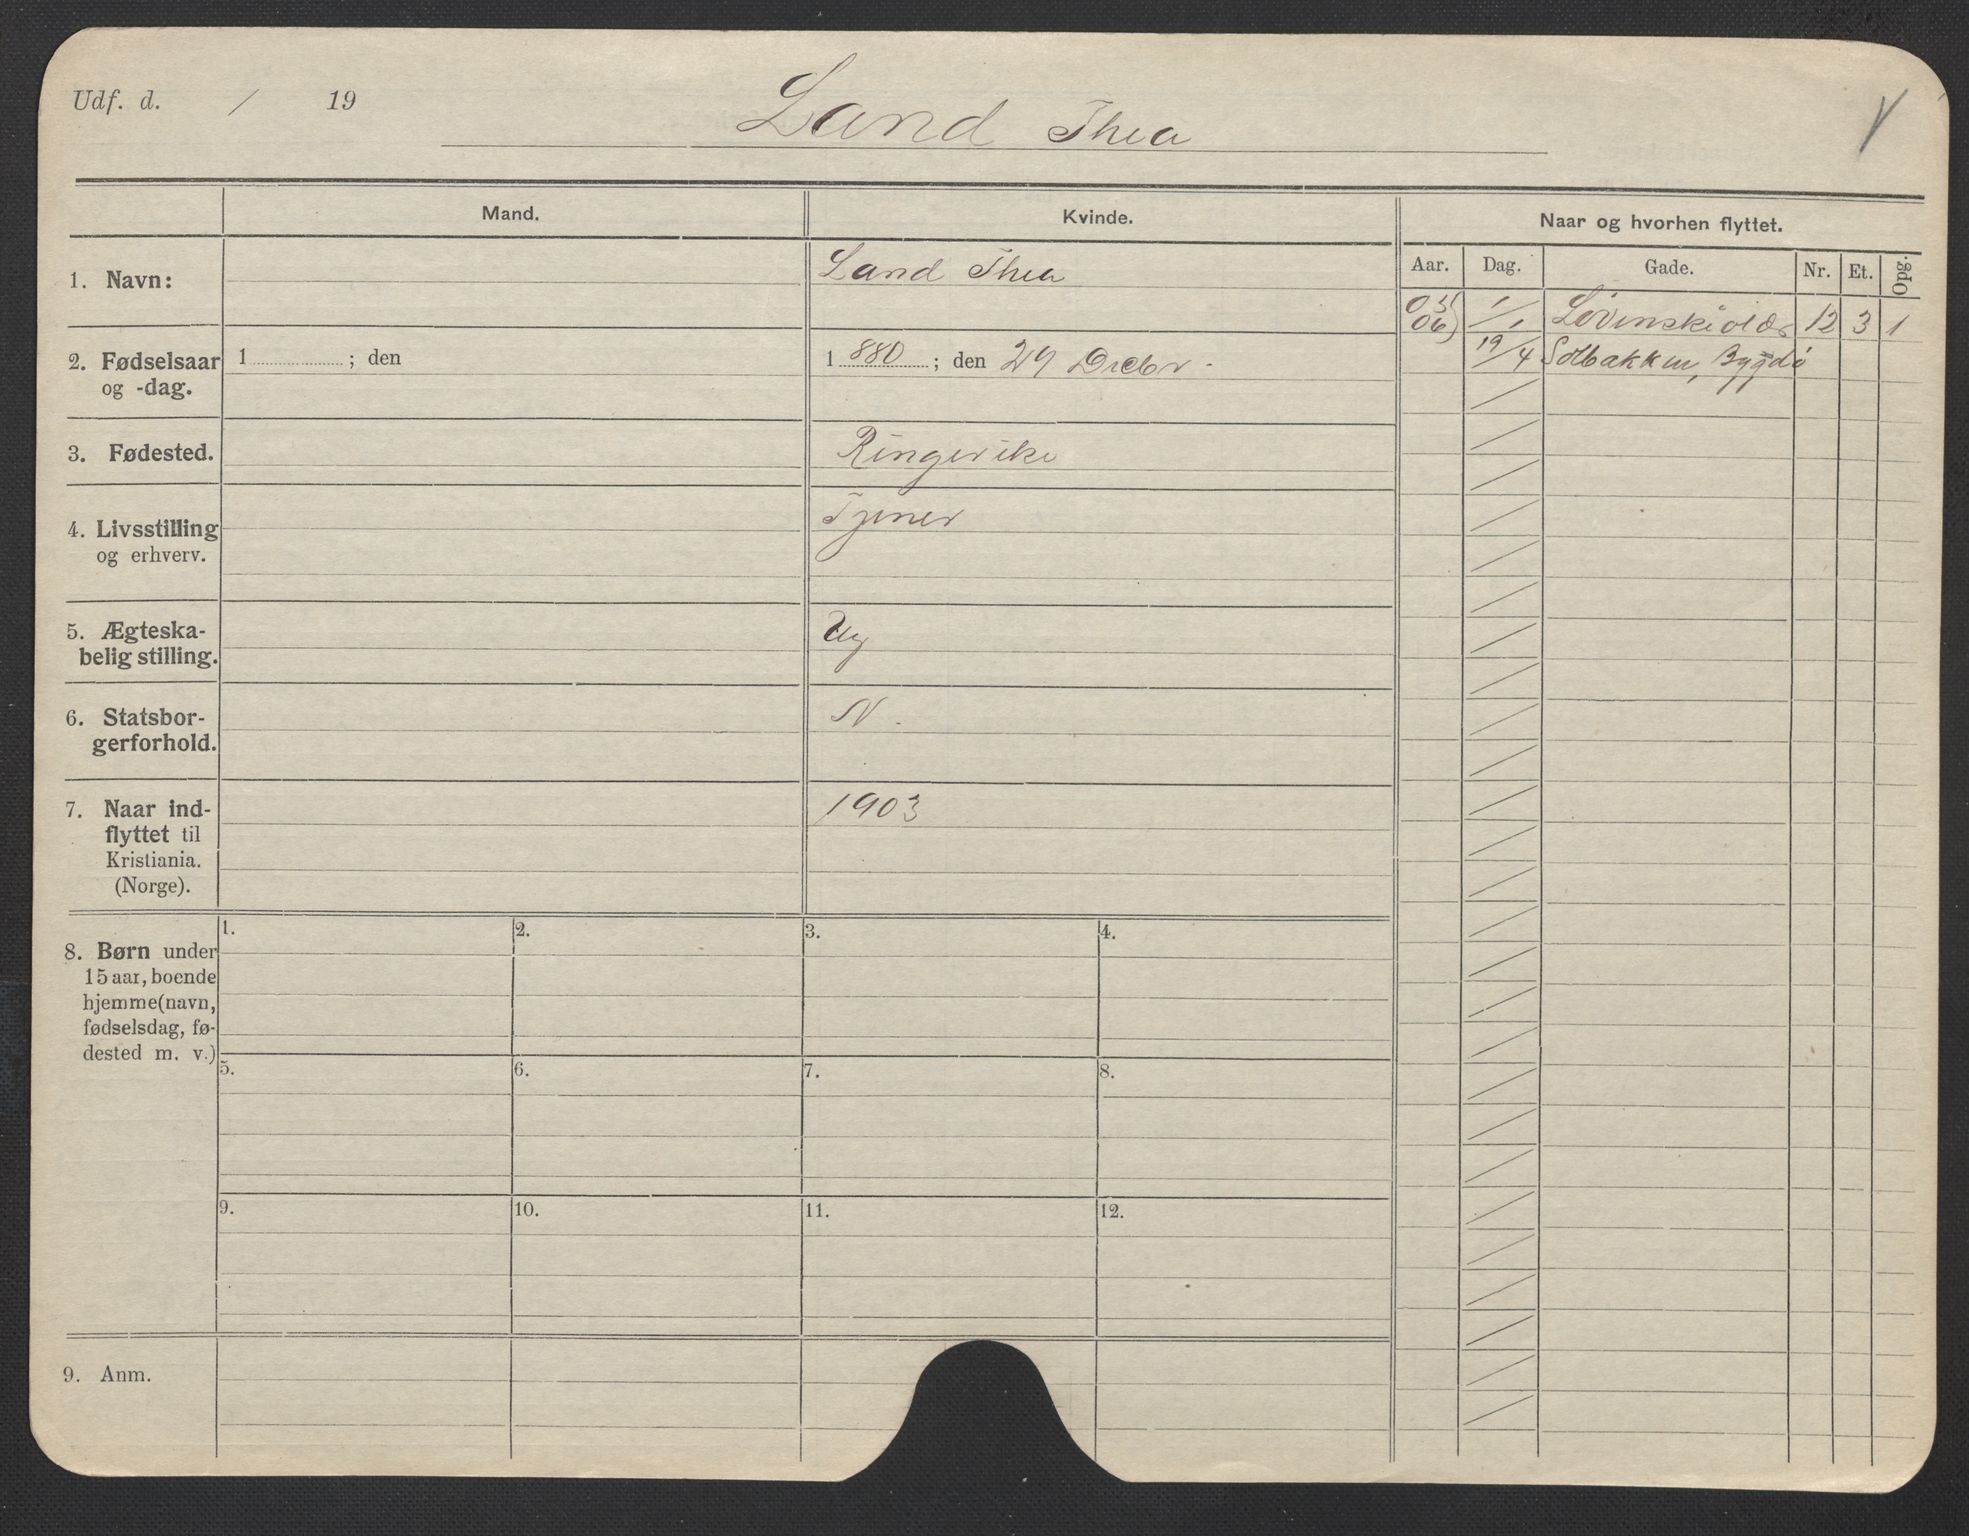 Udf. d. / 19
Land Thea
Mand.
Kvinde.
Naar og hvorhen flyttet.
Aar. Dag. Gade. Nr. Et. Opg.
1. Navn:
Land Thea
05 06) 1/1 Løvenskiolds 12 3 1
19/4 Solbakken, Bygdø
2. Fødselsaar
og -dag.
1 ; den
1 880 ; den 29 Decbr.
3. Fødested.
Ringerike
4. Livsstilling
og erhverv.
Tjener
5. Ægteska-
belig stilling.
Ug
6. Statsbor-
gerforhold.
N.
7. Naar ind-
flyttet til
Kristiania.
(Norge).
1903
8. Børn under
15 aar, boende
hjemme (navn,
fødselsdag, fø-
dested m. v.)
1. 2. 3. 4.
5. 6. 7. 8.
9. 10. 11. 12.
9. Anm.